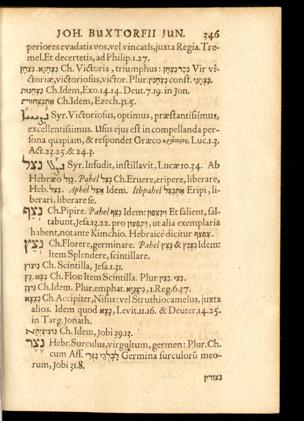 JOH. BUXTORFII JUN. 346
periores evadatis vos, vel vincatis, juxta Regia. Tre-
mel. Et decertetis, ad Philip.1.27.
Ch. Victoria, triumphus: Vir vi-
ctoriæ, victoriosus, victor. Plur. const.
Ch. Idem, Exo.14.14. Deut.7.19. in Jon.
Ch. Idem, Ezech.31.5.
Syr. Victoriosus, optimus, præstantissimus,
excellentissimus. Usus ejus est in compellanda per-
sona quapiam, & respondet Græco Luc.1.3.
Act.23.25. & 24.3.
נצל Syr. Infudit, instillavit, Lucæ 10.34. Ab
Hebræo נזל. Pahel נצל Ch. Eruere, eripere, liberare,
Heb. נצל. Aphel אצל Idem. Ithpahel אתנצל Eripi, li-
berari, liberare se.
נצף Ch. Pipire. Pahel נצף Idem: Et salient, sal-
tabunt, Jesa.13.22. pro ut alia exemplaria
habent, notante Kimchio. Hebraicè dicitur צפצף
נצץ Ch. Florere, germinare. Pahel נצץ & Idem:
Item Splendere, scintillare.
ניצוץ Ch. Scintilla, Jesa.1.31.
Ch. Flos: Item Scintilla. Plur.
Ch. Idem. Plur. emphat. 1.Reg.6.27.
נצצא Ch. Accipiter, Nisus: vel Struthiocamelus, juxta
alios. Idem quod נצא, Levit.11.16. & Deuter.14.25.
in Targ. Jonath.
Ch. Idem, Job 39.13.
נצר Hebr. Surculus, virgustum, germen: Plur. Ch.
cum Aff. Germina surculorū meo-
rum, Jobi 31.8.
נצורין